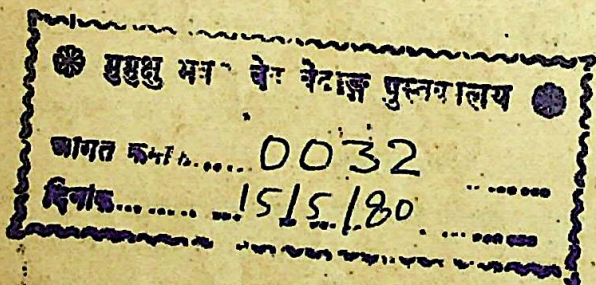 मुमुक्षु भवन वेद वेदाङ्ग पुस्तकालय
आगत क्रमांक..... 0032 .......
दिनांक....... 15/5/80 .......